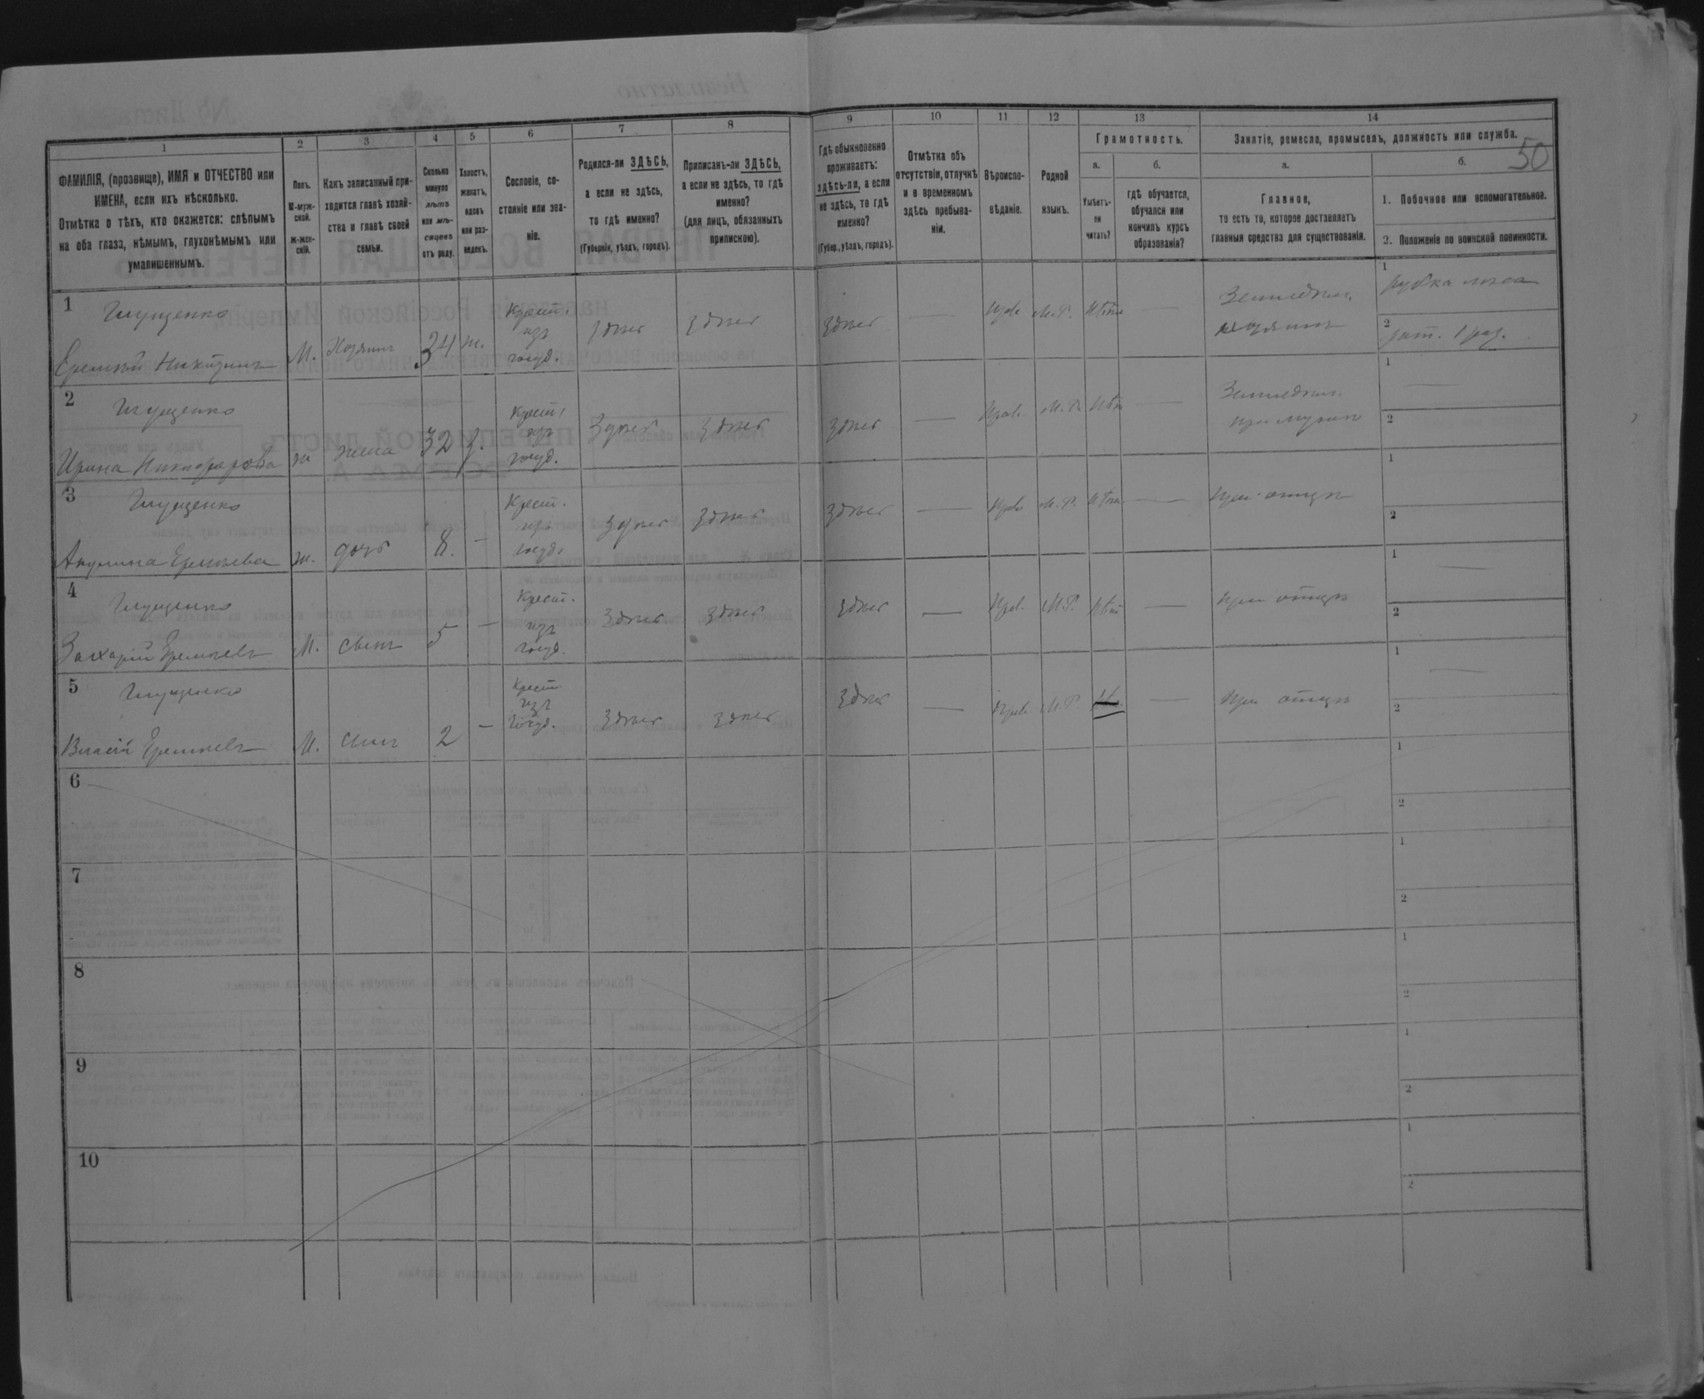 50
1
2
3
4
5
6
7
8
9
10
11
12
13
14
ФАМИЛІЯ, (прозвище), ИМЯ и ОТЧЕСТВО или ИМЕНА, если ихъ нѣсколько.
Отмѣтка о тѣхъ, кто окажется: слѣпымъ на оба глаза, нѣмымъ, глухонѣмымъ или умалишеннымъ.
Полъ.
М-муж-
ской.
ж-жен-
скій.
Какъ записанный при-
ходится главѣ хозяй-
ства и главѣ своей
семьи.
Сколько
минуло
лѣтъ
или мѣ-
сяцевъ
отъ роду.
Холостъ,
женатъ,
вдовъ
или раз-
веденъ.
Сословіе, со-
стояніе или зва-
ніе.
Родился-ли ЗДѢСЬ,
а если не здѣсь,
то гдѣ именно?
(Губернія, уѣздъ, городъ).
Приписанъ-ли ЗДѢСЬ,
а если не здѣсь, то гдѣ
именно?
(для лицъ, обязанныхъ
припискою).
Гдѣ обыкновенно
проживаетъ:
здѣсь-ли, а если
не здѣсь, то гдѣ
именно?
(Губер., уѣздъ, городъ).
Отмѣтка объ
отсутствіи, отлучкѣ
и о временномъ
здѣсь пребыва-
ніи.
Вѣроиспо-
вѣданіе.
Родной
языкъ.
Грамотность.
а.
Умѣетъ-
ли
читать?
б.
гдѣ обучается,
обучался или
кончилъ курсъ
образованія?
Занятіе, ремесло, промыселъ, должность или служба.
а.
Главное,
то есть то, которое доставляетъ
главныя средства для существованія.
б.
1. Побочное или вспомогательное.
2. Положеніе по воинской повинности.
1
М.
Хозяинъ
34
ж.
Крест.
изъ
госуд.
здѣсь
здѣсь
здѣсь
—
Прав.
М.Р.
Нѣтъ
—
Земледѣл.
хозяинъ
1 рубка лѣса
2
2
Ирина Никифорова
ж
жена
32
з.
Крест.
изъ
госуд.
здѣсь
здѣсь
здѣсь
—
Прав.
М.Р.
Нѣтъ
—
Земледѣл.
при мужѣ
1
2
3
Акулина Еремѣева
ж.
дочь
8.
—
Крест.
изъ
госуд.
здѣсь
здѣсь
здѣсь
—
Прав
М.Р.
Нѣтъ
—
При отцѣ
1
2
4
Захарій Еремѣевъ
М.
сынъ
5
—
Крест.
изъ
госуд.
здѣсь
здѣсь
здѣсь
—
Прав.
М.Р.
Нѣт
—
При отцѣ
1
2
5
Власій Еремѣевъ
М.
сынъ
2
—
Крест
изъ
госуд.
здѣсь
здѣсь
здѣсь
—
Прав.
М.Р.
—
При отцѣ
1
2
6
1
2
7
1
2
8
1
2
9
1
2
10
1
2